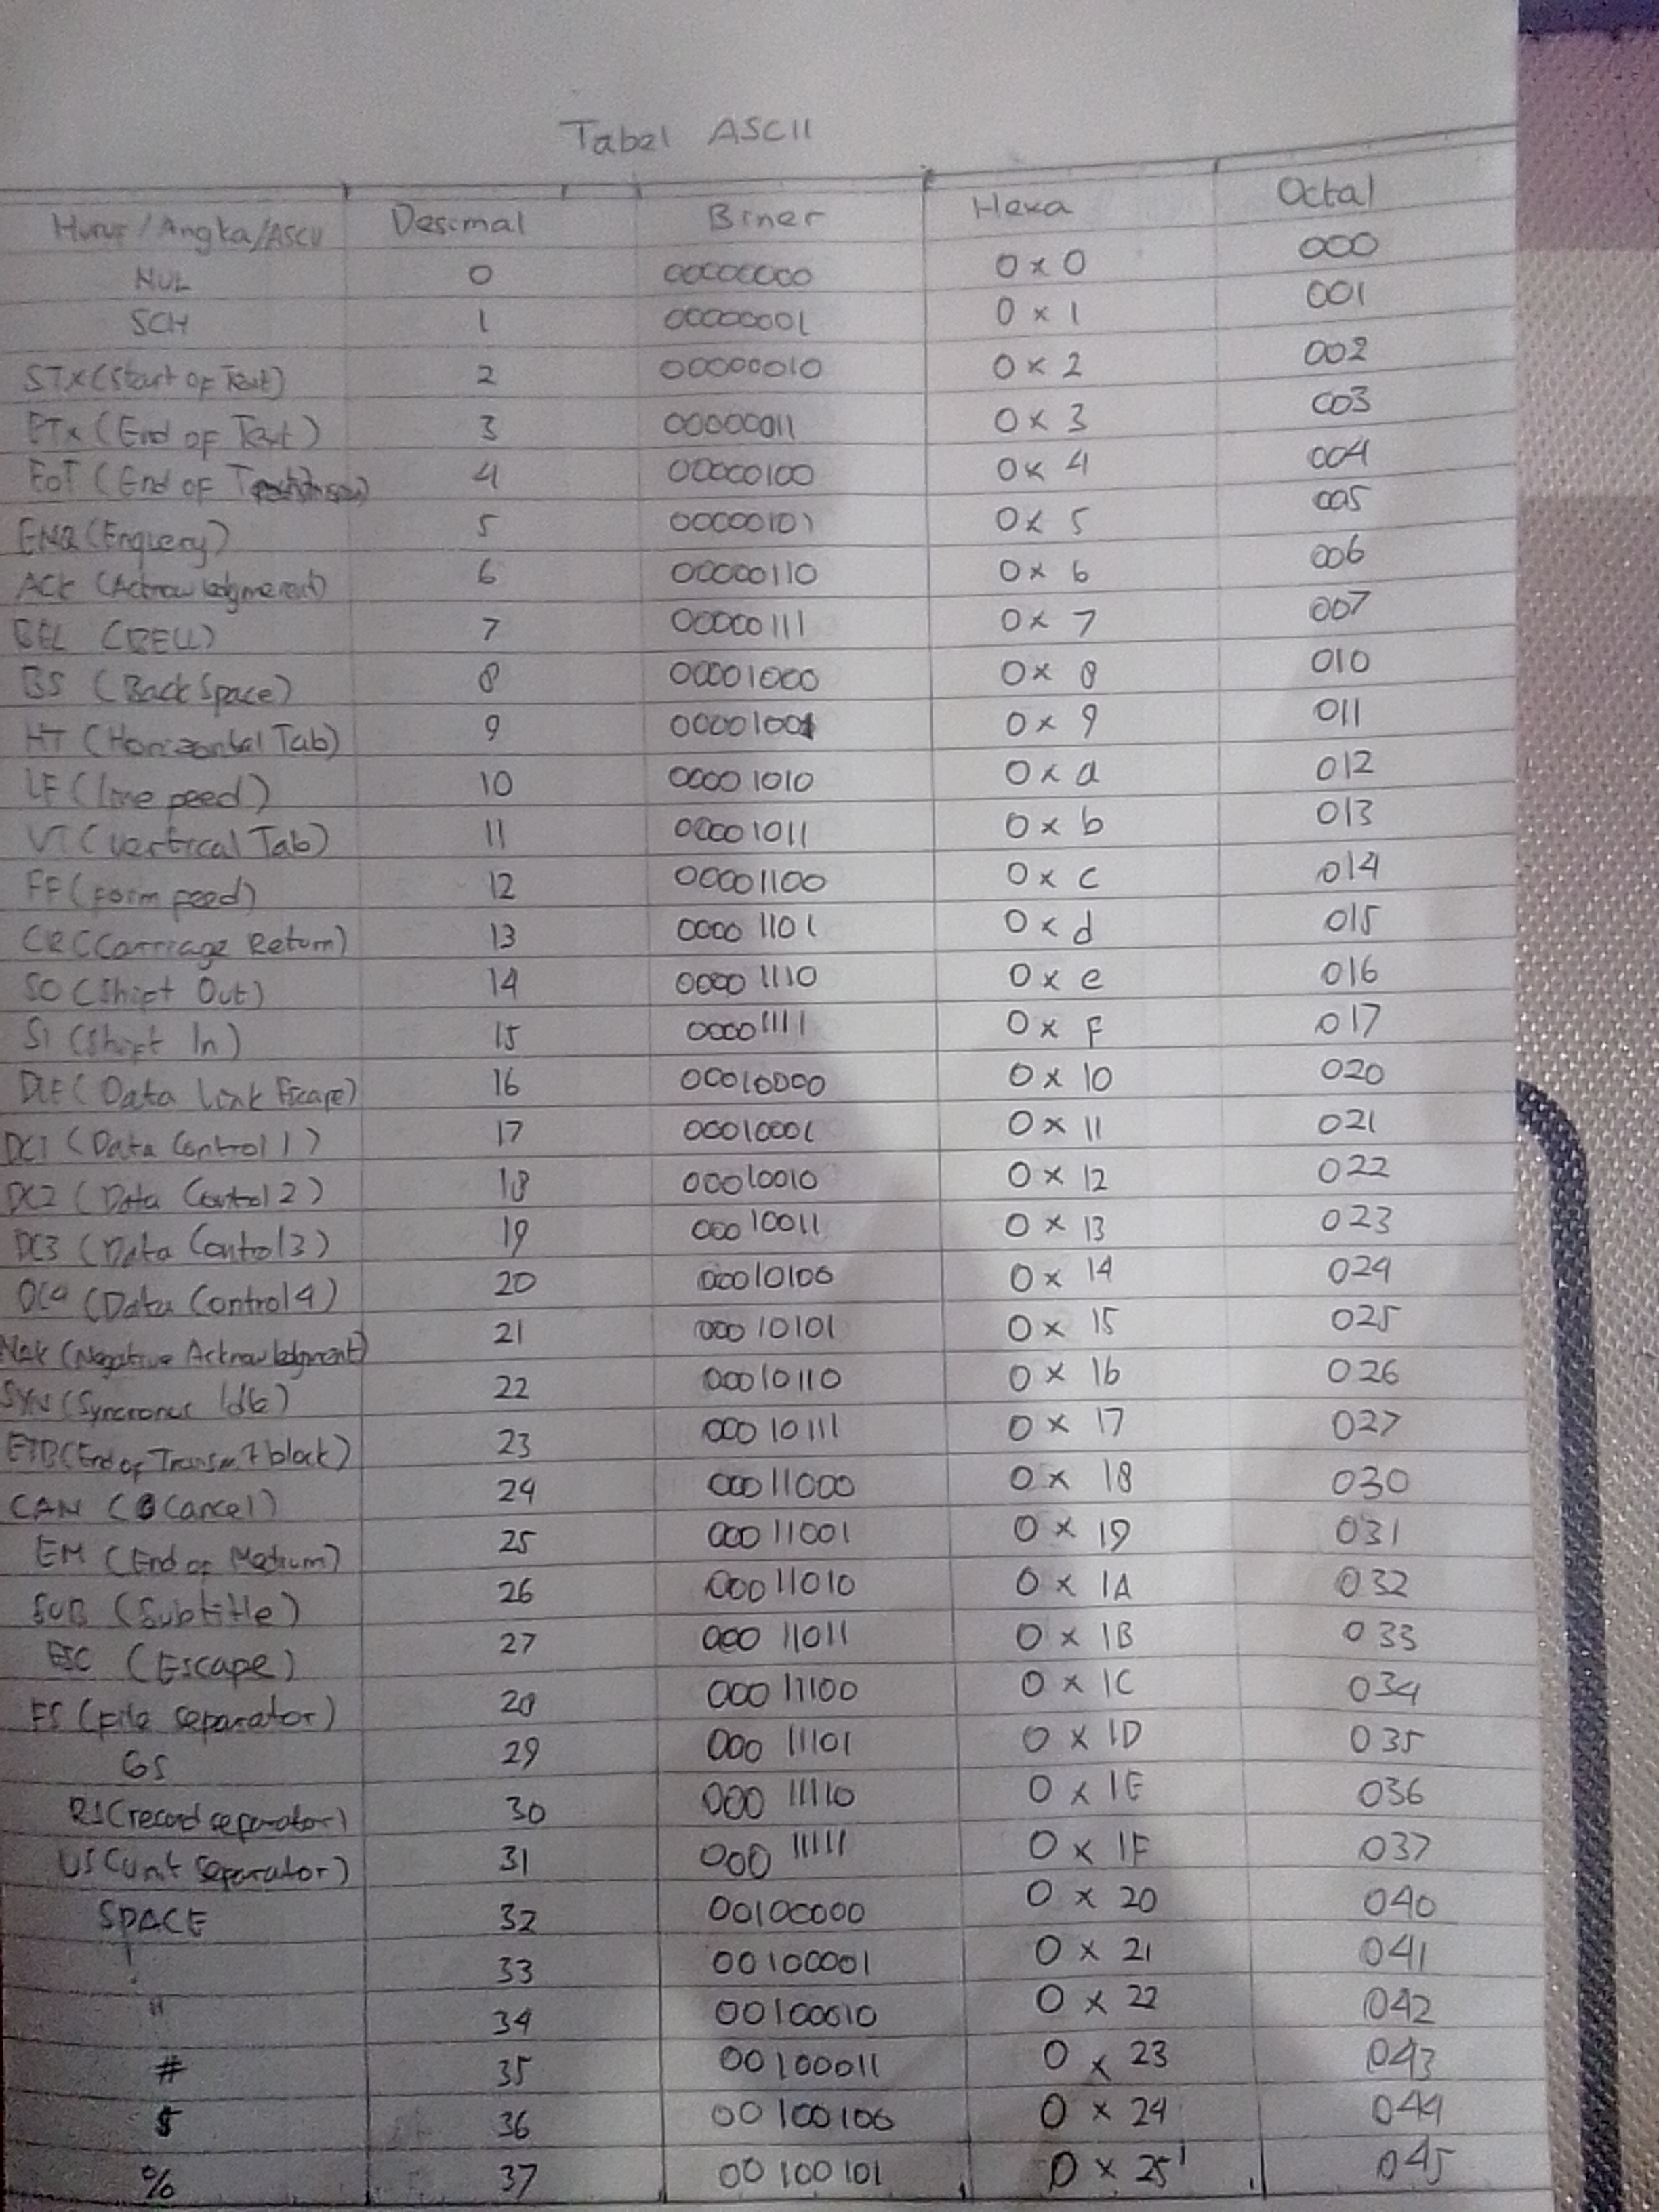 Tabel ASCII
Huruf/Angka/ASCII Desimal Biner Hexa Octal
NUL 0 00000000 0x0 000
SCH 1 00000001 0x1 001
STX (Start of Text) 2 00000010 0x2 002
ETX (End of Text) 3 00000011 0x3 003
EOT (End of 4 00000100 0x4 004
ENQ (Enquery) 5 00000101 0x5 005
ACK 6 00000110 0x6 006
BEL (BELL) 7 00000111 0x7 007
BS (Back Space) 8 00001000 0x8 010
HT (Horizontal Tab) 9 00001001 0x9 011
LF (line feed) 10 00001010 0xa 012
VT (Vertical Tab) 11 00001011 0xb 013
FF (form feed) 12 00001100 0xc 014
CR (Carriage Return) 13 00001101 0xd 015
SO (Shift Out) 14 00001110 0xe 016
SI (Shift In) 15 00001111 0xF 017
DLE (Data Link Escape) 16 00010000 0x10 020
DC1 (Data Control 1) 17 00010001 0x11 021
DC2 (Data Control 2) 18 00010010 0x12 022
DC3 (Data Control 3) 19 00010011 0x13 023
DC4 (Data Control 4) 20 00010100 0x14 024
NAK (Negative Acknowledgment) 21 00010101 0x15 025
SYN (Syncronus 22 00010110 0x16 026
ETB (End of block) 23 00010111 0x17 027
CAN (Cancel) 24 00011000 0x18 030
EM (End of Medium) 25 00011001 0x19 031
SUB (Subtitle) 26 00011010 0x1A 032
ESC (Escape) 27 00011011 0x1B 033
FS (file separator) 28 00011100 0x1C 034
GS 29 00011101 0x1D 035
RS (record separator) 30 00011110 0x1E 036
US (Unit Separator) 31 00011111 0x1F 037
SPACE 32 00100000 0x20 040
! 33 00100001 0x21 041
" 34 00100010 0x22 042
# 35 00100011 0x23 043
$ 36 00100100 0x24 044
% 37 00100101 0x25 045